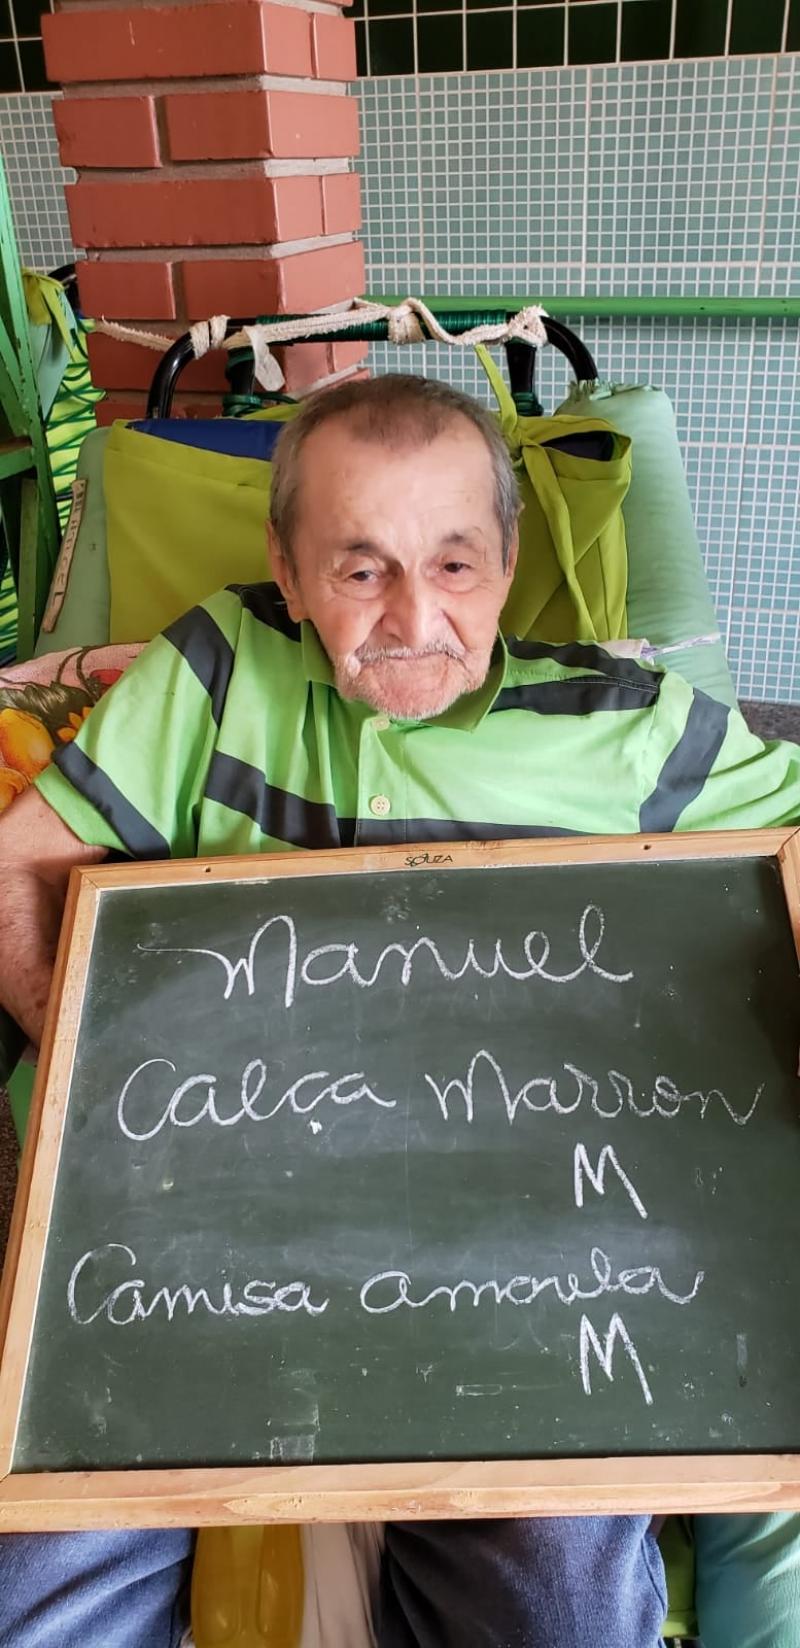 SOUZA
Manuel
Calça Marron
M
Camisa amarela
M